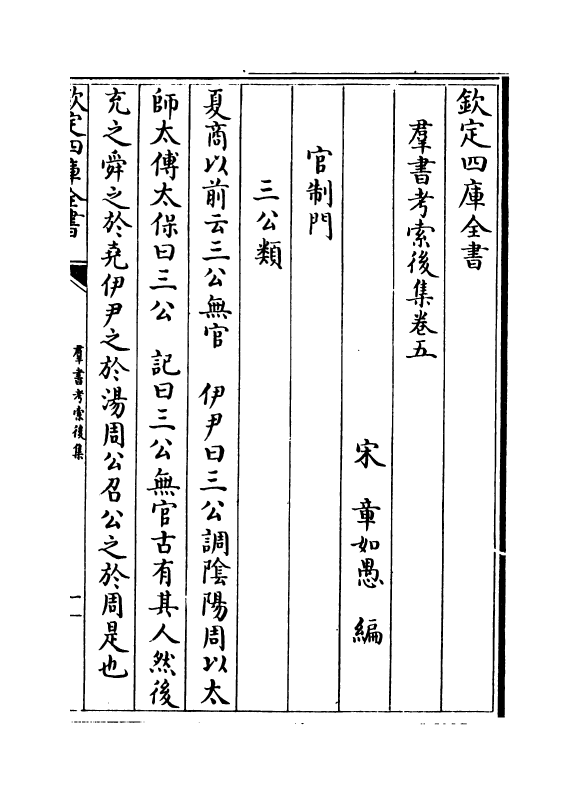 欽定四庫全書
羣書考索後集卷五
宋 章如愚 編
官制門
三公類
夏商以前云三公無官 伊尹曰三公調隂陽周以太
師太傅太保曰三公 記曰三公無官古有其人然後
充之舜之於堯伊尹之於湯周公召公之於周是也
欽定四庫全書
羣書考索後集
一